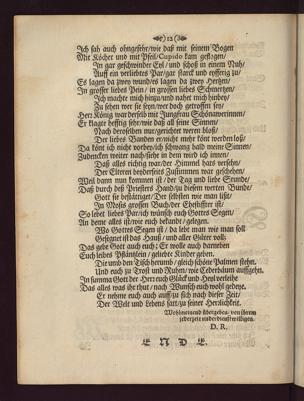 )12(
Ich sah auch ohngefehr / wie daß mit seinem Bogen
Mit Köcher und mit Pfeil / Cupido kam geflogen /
In gar geschwinder Eyl / und schoß in einem Nuh /
Auff ein verliebtes Par / gar starck und eyfferig zu /
Es lagen da zwey wund / es lagen da zwey Hertzen /
In grosser liebes Pein / in grossen liebes Schmertzen /
Ich machte mich hinzu / und nahet mich hinbey /
Zu sehen wer sie seyn / wer doch getroffen sey /
Herr König war derselb mit Jungfrau Schönawerinnen /
Er klagte hefftig sehr / wie daß all seine Sinnen
Nach deroselben nur gerichtet weren bloß /
Der liebes Banden er nicht mehr könt werden loß /
Da könt ich nicht vorbey / ich schwang bald meine Sinnen /
Zudencken weiter nach / siehe in dem wird ich innen /
Daß alles richtig war / der Himmel hats versehn /
Der Eltern beyderseits Zustimmen war geschehn /
Weil dann nun kommen ist / der Tag und liebe Stunde /
Daß durch deß Priesters Hand / zu diesem werten Bunde /
Gott sie bestättiget / Der selbsten wie man list /
In Mosis grossen Buch / der Ehestiffter ist /
So lebet liebes Par / ich wünsch euch Gottes Segen /
An deme alles ist / wie euch bekandt / gelegen.
Wo Gottes Segen ist / da lebt man wie man soll
Gesegnet ist das Hauß / und aller Güter voll;
Das gebe Gott auch euch; Er wolle auch darneben
Euch liebes Pfläntzlein / geliebte Kinder geben.
Die umb den Tisch herumb / gleich schöne Palmen stehn /
Und euch zu Trost und Ruhm / wie Cederbäum auffgehn.
In summa Gott der Herr euch Glück und Heyl verleihe
Das alles was ihr thut / nach Wunsch euch wohl gedeye.
Er nehme euch auch auff / zu sich nach dieser Zeit /
Der Welt und Lebens satt / zu seiner Herrlichkeit.
Wohlmeinend übergeben von ihrem
jederzeit und dienstwilligen.
D. R.
ENDE.